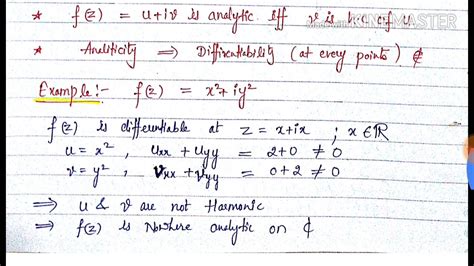 * f(z) = u+iv is analytic iff v is h.c of u.
* Analiticity ⟹ Diffrentiability (at every points) ¢
Example:- f(z) = x²+ iy²
f(z) is differentiable at z = x+ix ; x ∈ ℝ
u = x² , uxx + uyy = 2+0 ≠ 0
v = y² , vxx + vyy = 0+2 ≠ 0
⟹ u & v are not Harmonic
⟹ f(z) is Nowhere analytic on ¢